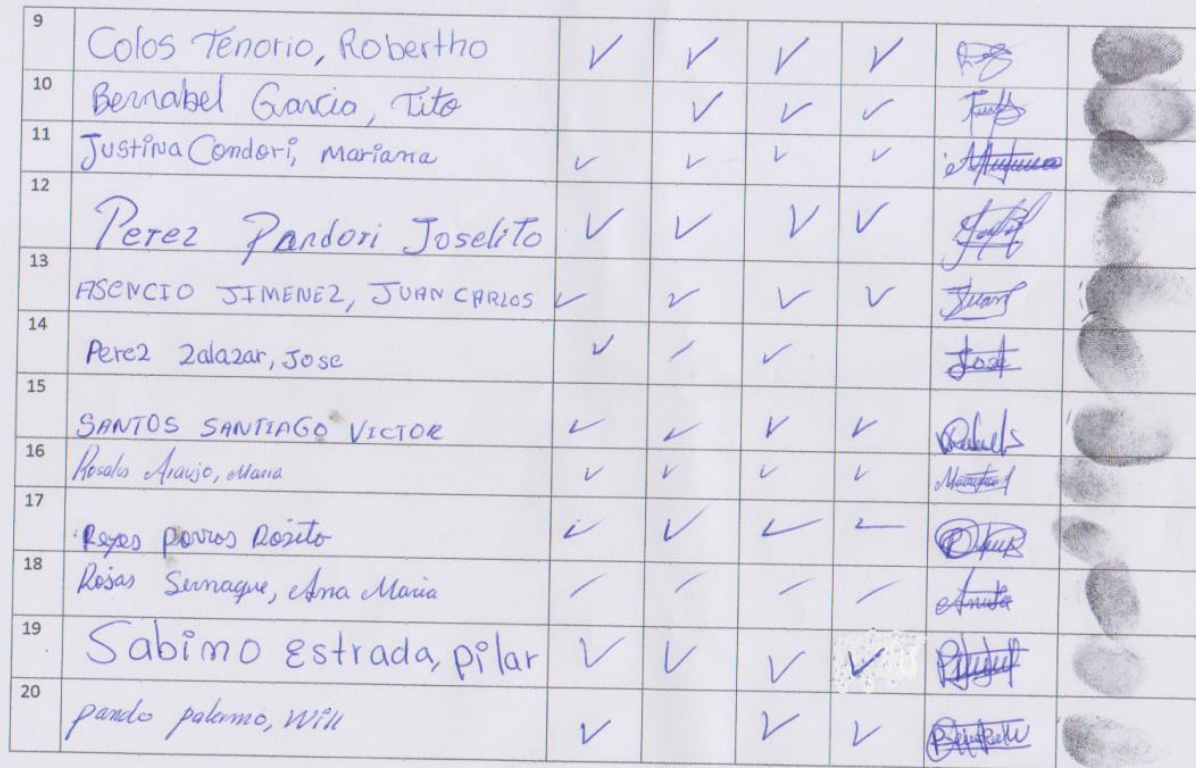 9 Colos Tenorio, Robertho ✓ ✓ ✓ ✓
10 Bernabel Garcia, Tito ✓ ✓ ✓
11 Justina Condori, Mariana ✓ ✓ ✓ ✓
12 Perez Pandori Joselito ✓ ✓ ✓ ✓
13 ASENCIO JIMENEZ, JUAN CARLOS ✓ ✓ ✓ ✓ Juan
14 Perez Zalazar, Jose ✓ ✓ ✓ José
15 SANTOS SANTIAGO VICTOR ✓ ✓ ✓ ✓
16 Rosales Araujo, Maria ✓ ✓ ✓ ✓
17 Reyes porras Rosito ✓ ✓ ✓ ✓
18 Rosas Sernaque, Ana Maria ✓ ✓ ✓ ✓ Anita
19 Sabino Estrada, pilar ✓ ✓ ✓ ✓
20 pando palermo, Will ✓ ✓ ✓